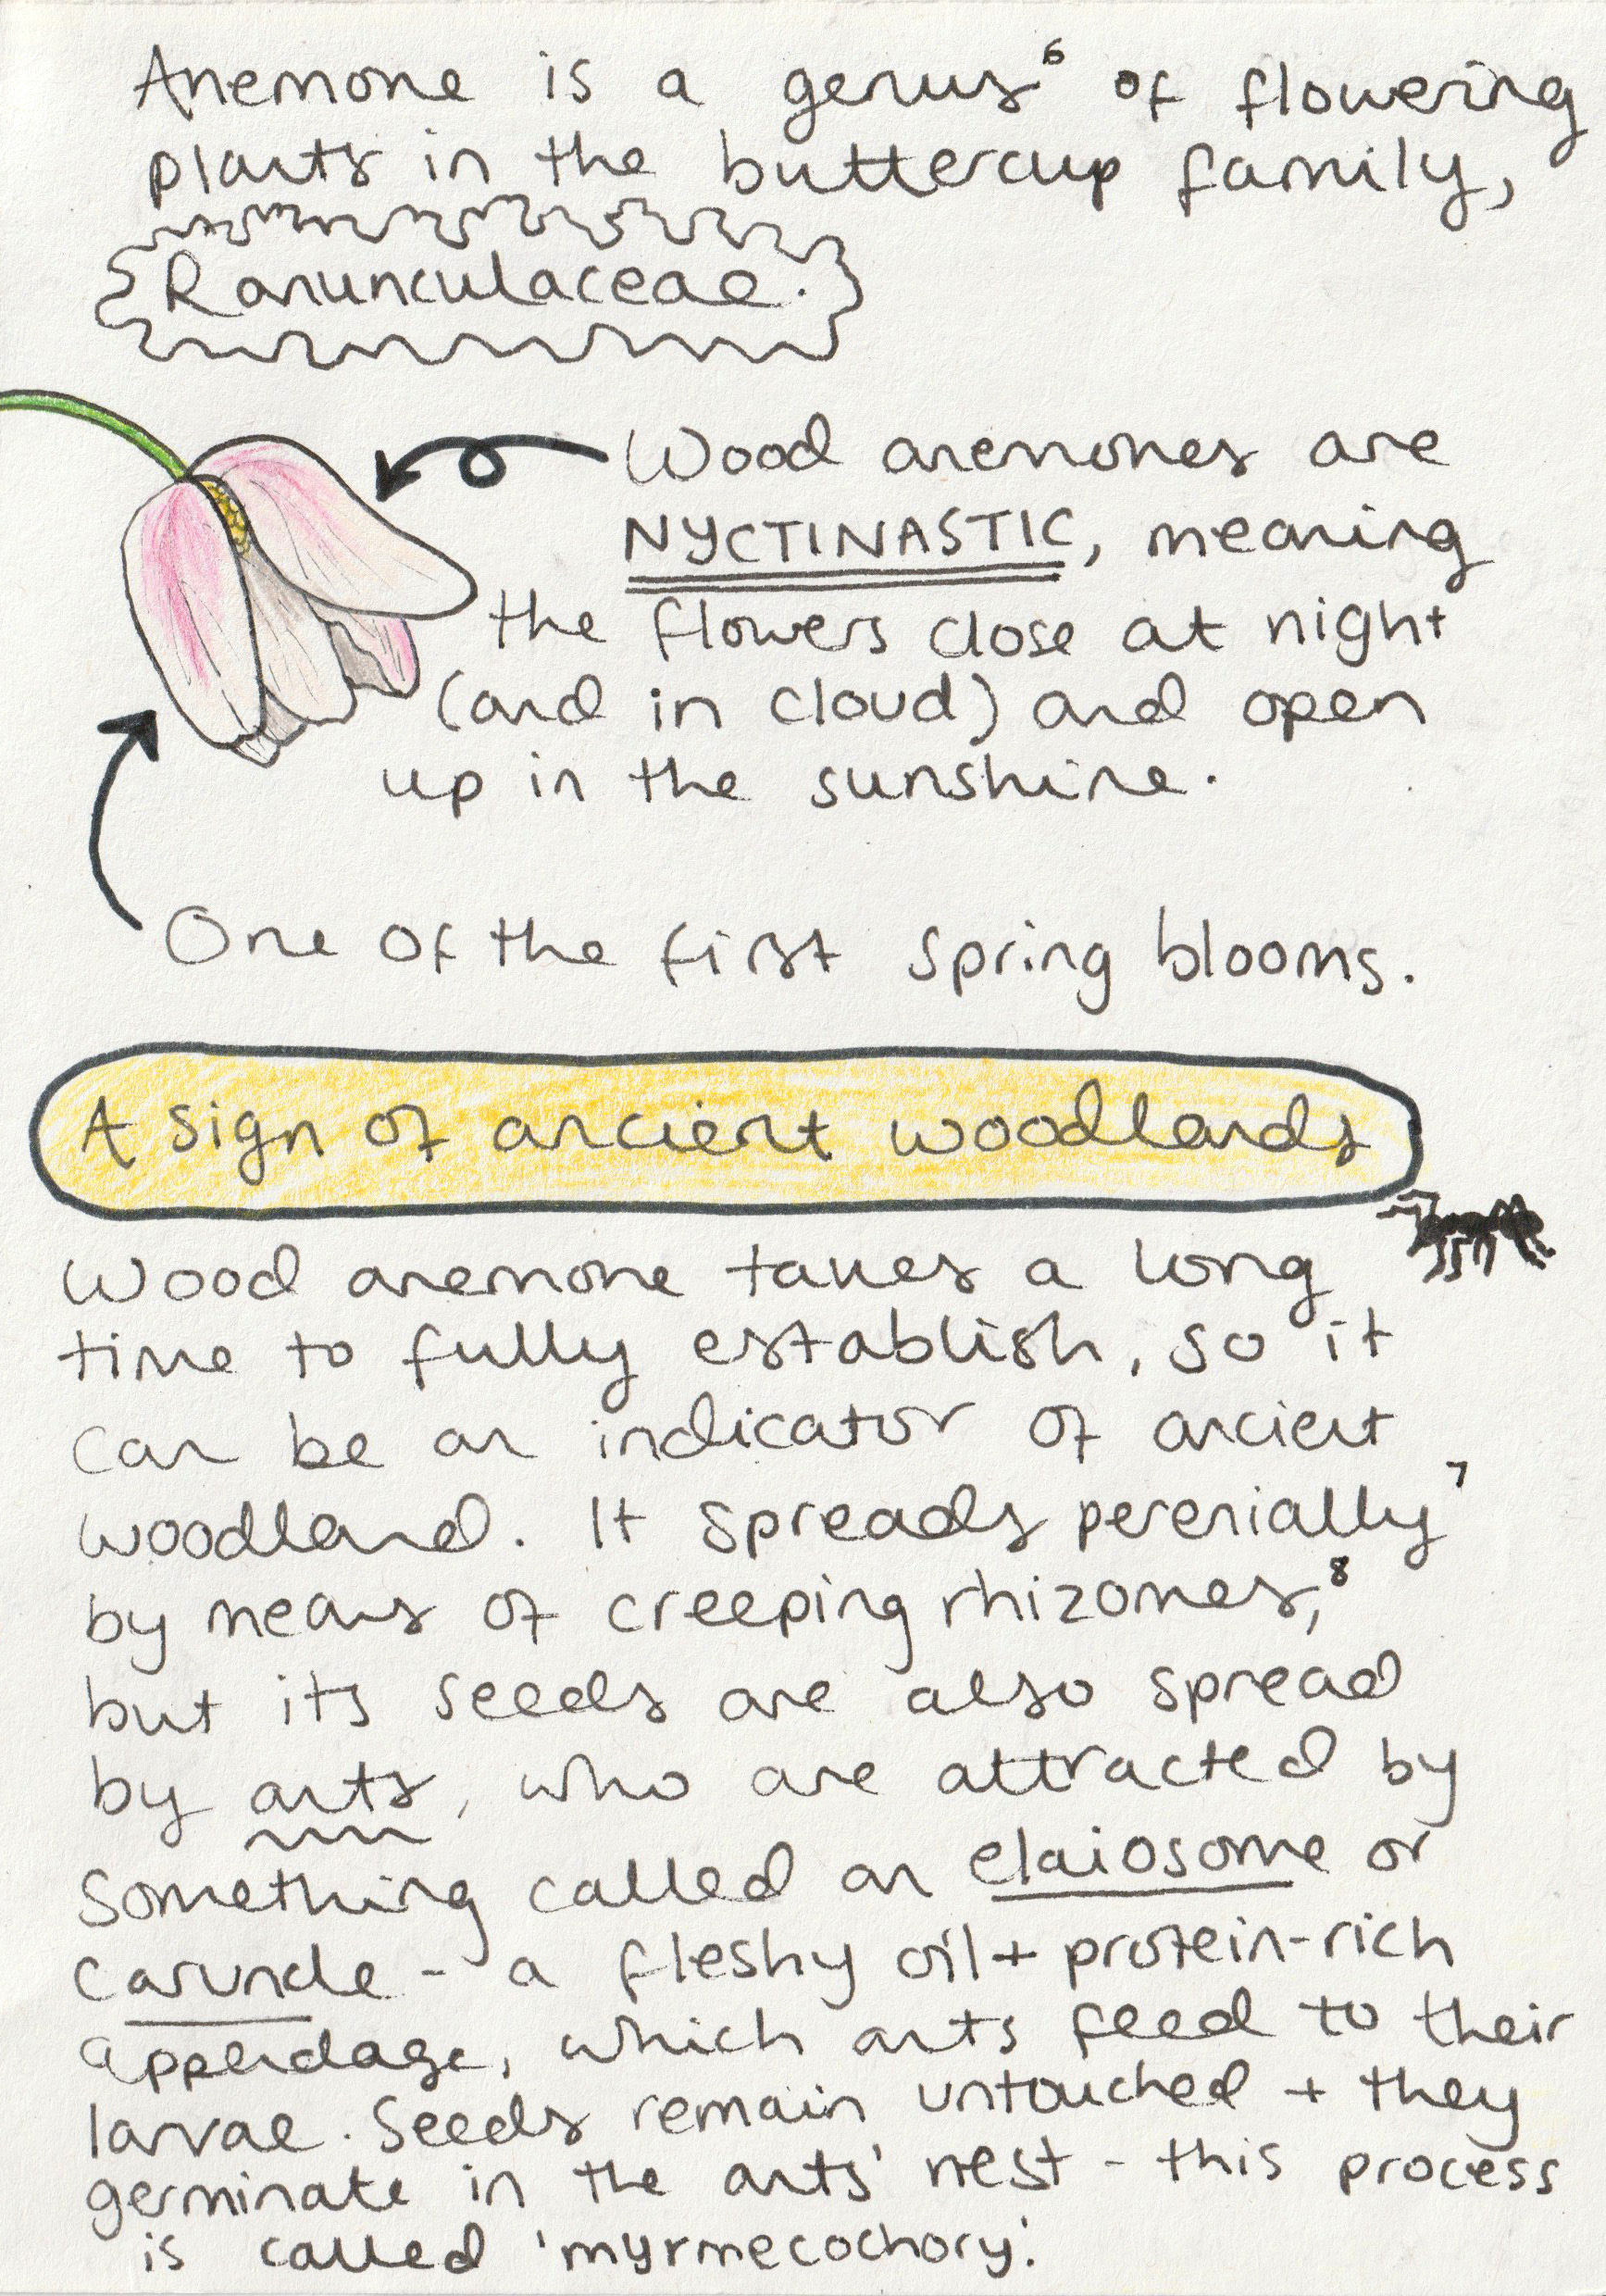 Anemone is a genus⁶ of flowering
plants in the buttercup family,
Ranunculaceae.
Wood anemones are
NYCTINASTIC, meaning
the flowers close at night
(and in cloud) and open
up in the sunshine.
One of the first spring blooms.
A sign of ancient woodlands
Wood anemone takes a long
time to fully establish, so it
can be an indicator of ancient
woodland. It spreads perenially⁷
by means of creeping rhizomes,⁸
but its seeds are also spread
by ants, who are attracted by
something called an elaiosome or
caruncle - a fleshy oil + protein-rich
appendage, which ants feed to their
larvae. Seeds remain untouched + they
germinate in the ants' nest - this process
is called 'myrmecochory'.